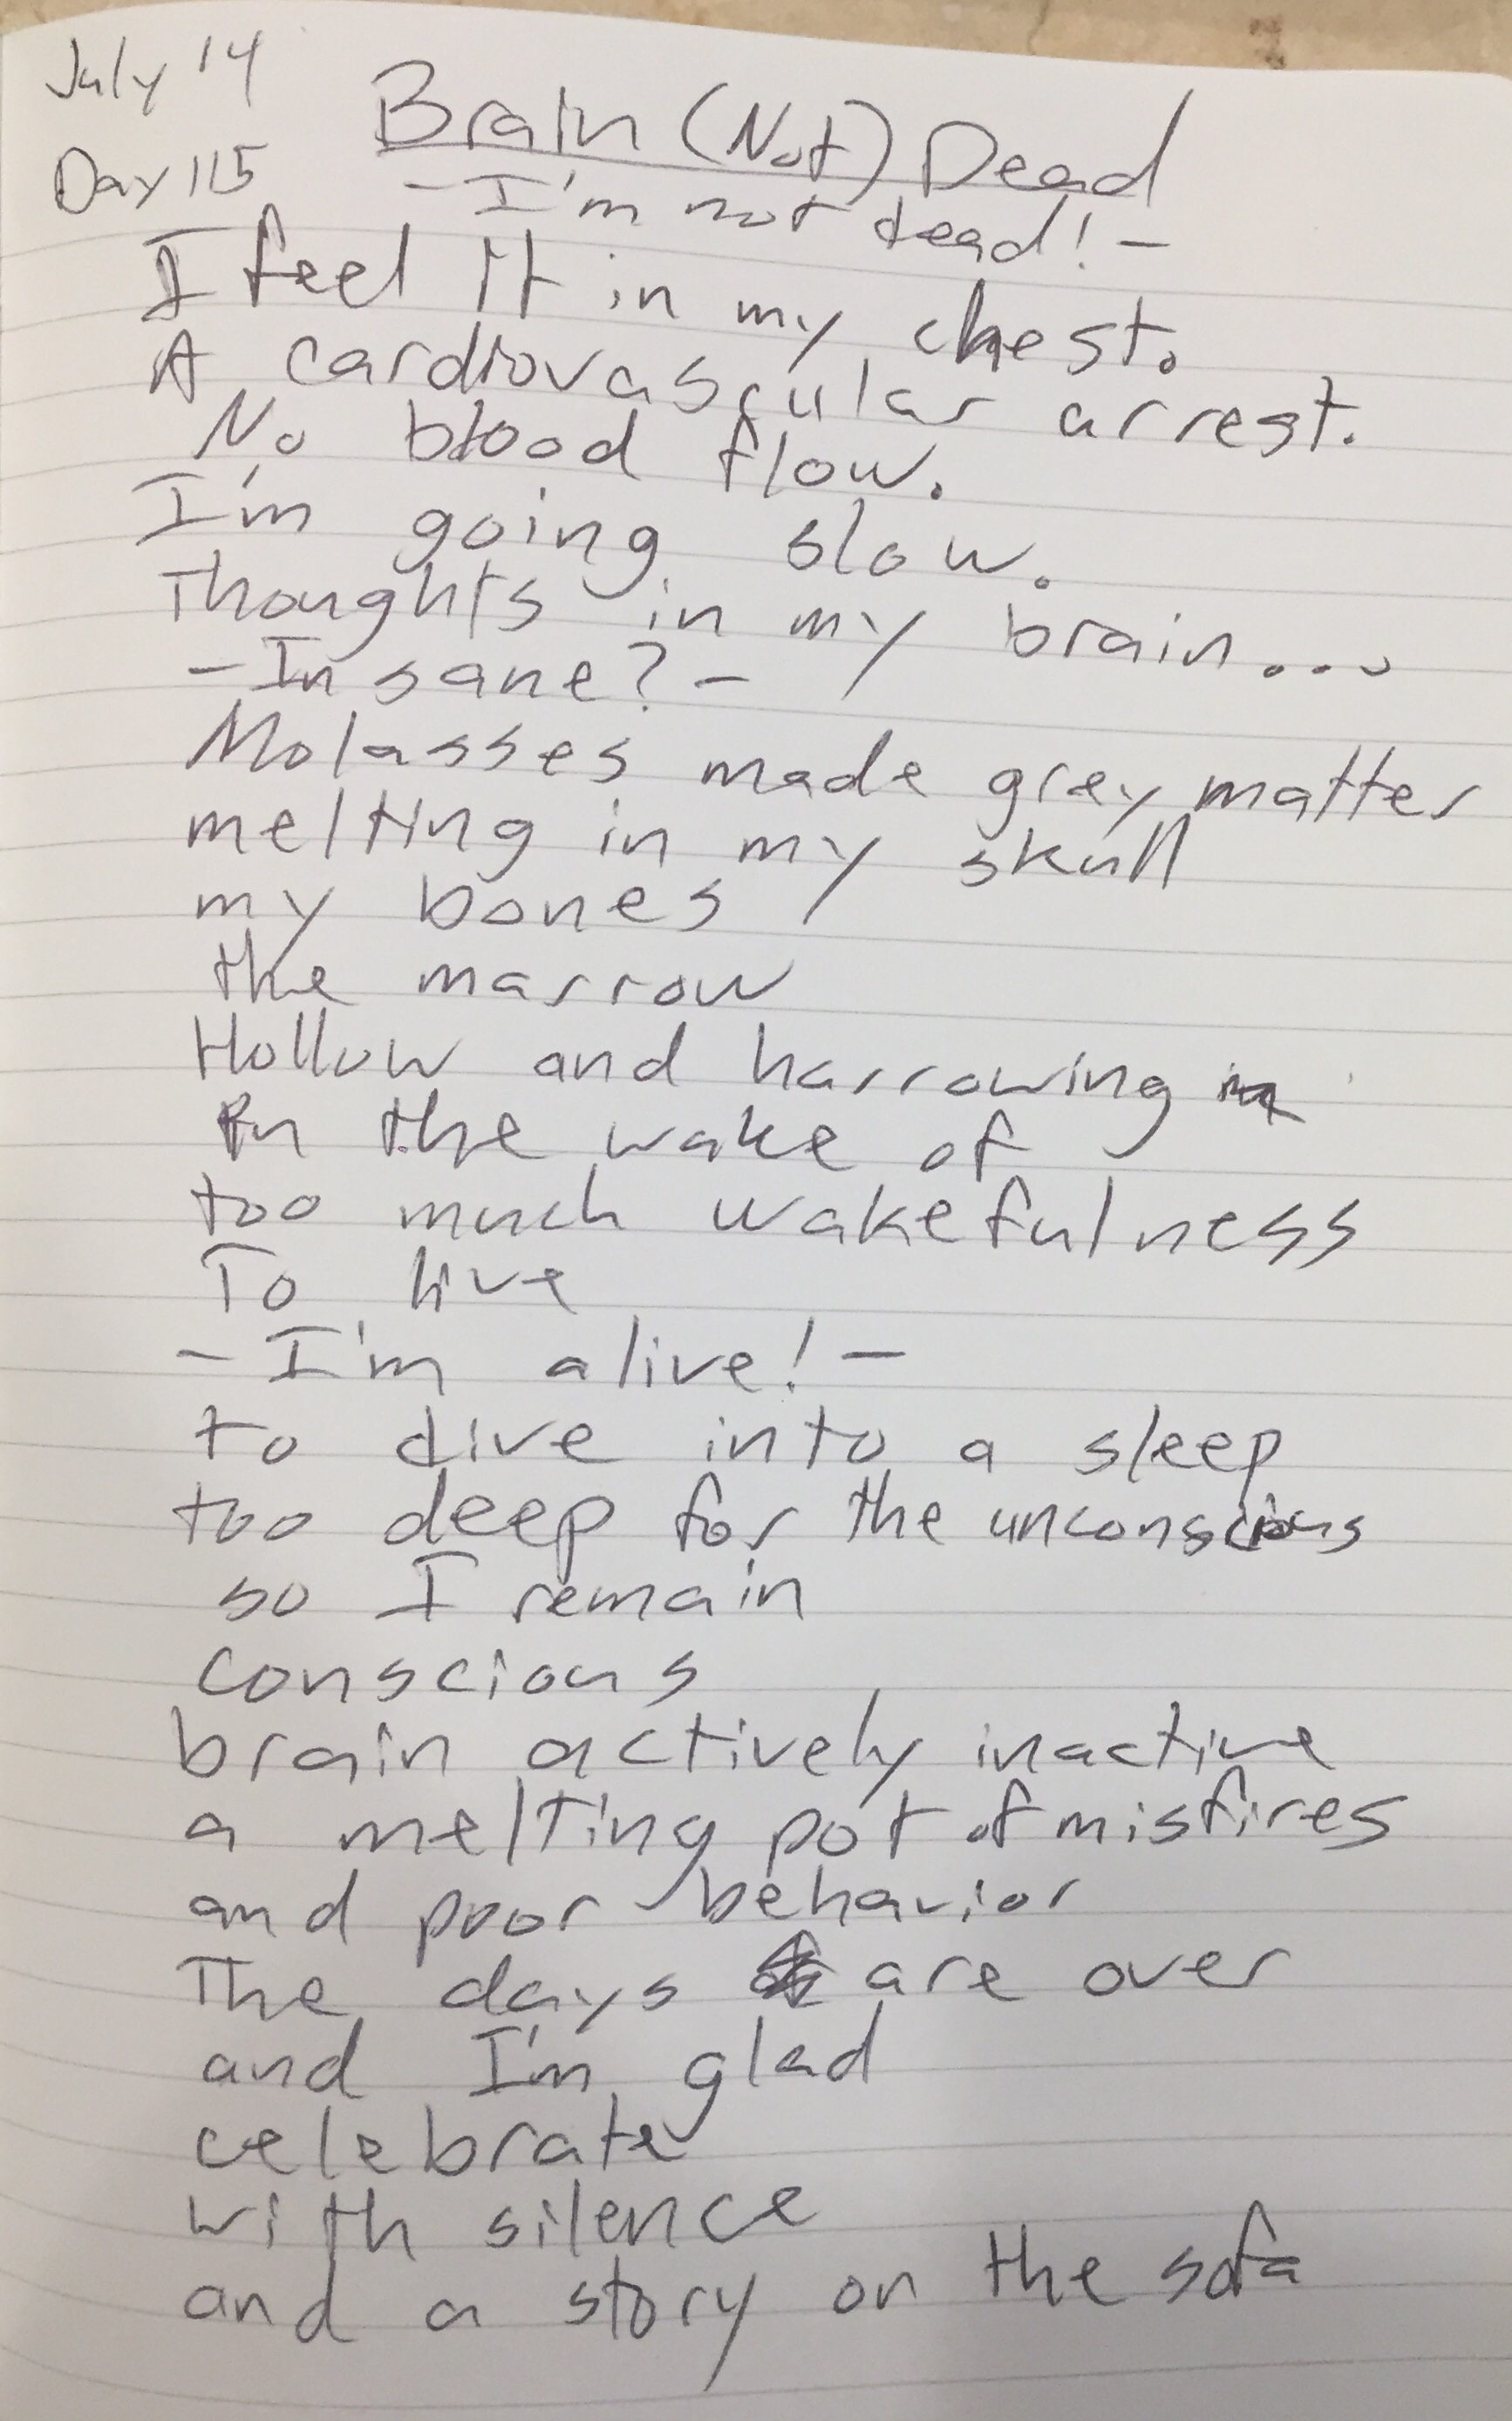 July 14
Day 115
Brain (Not) Dead
- I'm not dead! -
I feel it in my chest.
A cardiovascular arrest.
No blood flow.
I'm going slow.
Thoughts in my brain...
- Insane? -
Molasses made grey matter
melting in my skull
my bones
the marrow
Hollow and harrowing
In the wake of
too much wakefulness
To live
- I'm alive! -
to dive into a sleep
too deep for the unconscious
so I remain
conscious
brain actively inactive
a melting pot of misfires
and poor behavior
The days are over
and I'm glad
celebrate
with silence
and a story on the sofa